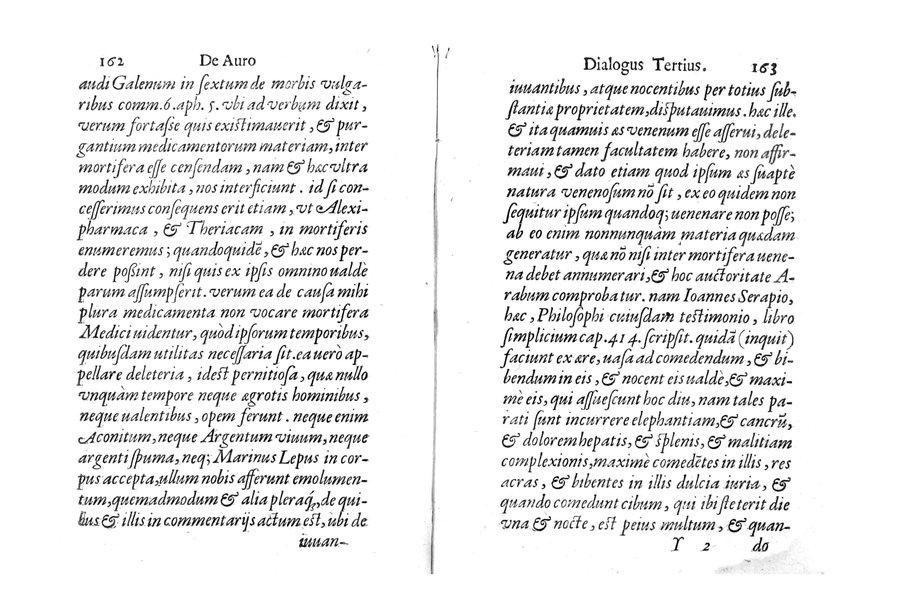 162 De Auro
audi Galenum in ſextum de morbis vulga-
ribus comm.6.aph. 5. vbi ad verbum dixit,
verum fortaſſe quis exiſtimauerit, & pur-
gantium medicamentorum materiam, inter
mortifera eſſe cenſendam, nam & hæc vltra
modum exhibita, nos interficiunt. id ſi con-
ceſſerimus conſequens erit etiam, vt Alexi-
pharmaca, & Theriacam, in mortiferis
enumeremus; quandoquidē, & hæc nos per-
dere poßint, niſi quis ex ipſis omnino ualde
parum aſſumpſerit. verum ea de cauſa mihi
plura medicamenta non vocare mortifera
Medici uidentur, quòd ipſorum temporibus,
quibuſdam utilitas neceſſaria ſit. ea uerò ap-
pellare deleteria, idest pernitioſa, quæ nullo
vnquàm tempore neque ægrotis hominibus,
neque ualentibus, opem ferunt. neque enim
Aconitum, neque Argentum viuum, neque
argenti ſpuma, neq; Marinus Lepus in cor-
pus accepta, ullum nobis afferunt emolumen-
tum, quemadmodum & alia pleraq́, de qui-
bus & illis in commentarijs actum est, ubi de
iuuan-
Dialogus Tertius. 163
iuuantibus, atque nocentibus per totius ſub-
ſtantiæ proprietatem, diſputauimus. hæc ille.
& ita quamuis æs venenum eſſe aſſerui, dele-
teriam tamen facultatem habere, non affir-
maui, & dato etiam quod ipſum æs ſuaptè
natura venenoſum nō ſit, ex eo quidem non
ſequitur ipſum quandoq; uenenare non poſſe;
ab eo enim nonnunquàm materia quædam
generatur, quæ nō niſi inter mortifera uene-
na debet annumerari, & hoc auctoritate A-
rabum comprobatur. nam Ioannes Serapio,
hæc, Philoſophi cuiuſdam testimonio, libro
ſimplicium cap. 414. ſcripſit. quidā (inquit)
faciunt ex ære, uaſa ad comedendum, & bi-
bendum in eis, & nocent eis ualdè, & maxi-
mè eis, qui aſſueſcunt hoc diu, nam tales pa-
rati ſunt incurrere elephantiam, & cancrū,
& dolorem hepatis, & ſplenis, & malitiam
complexionis, maximè comedētes in illis, res
acras, & bibentes in illis dulcia iuria, &
quando comedunt cibum, qui ibi ſteterit die
vna & nocte, est peius multum, & quan-
Y 2 do